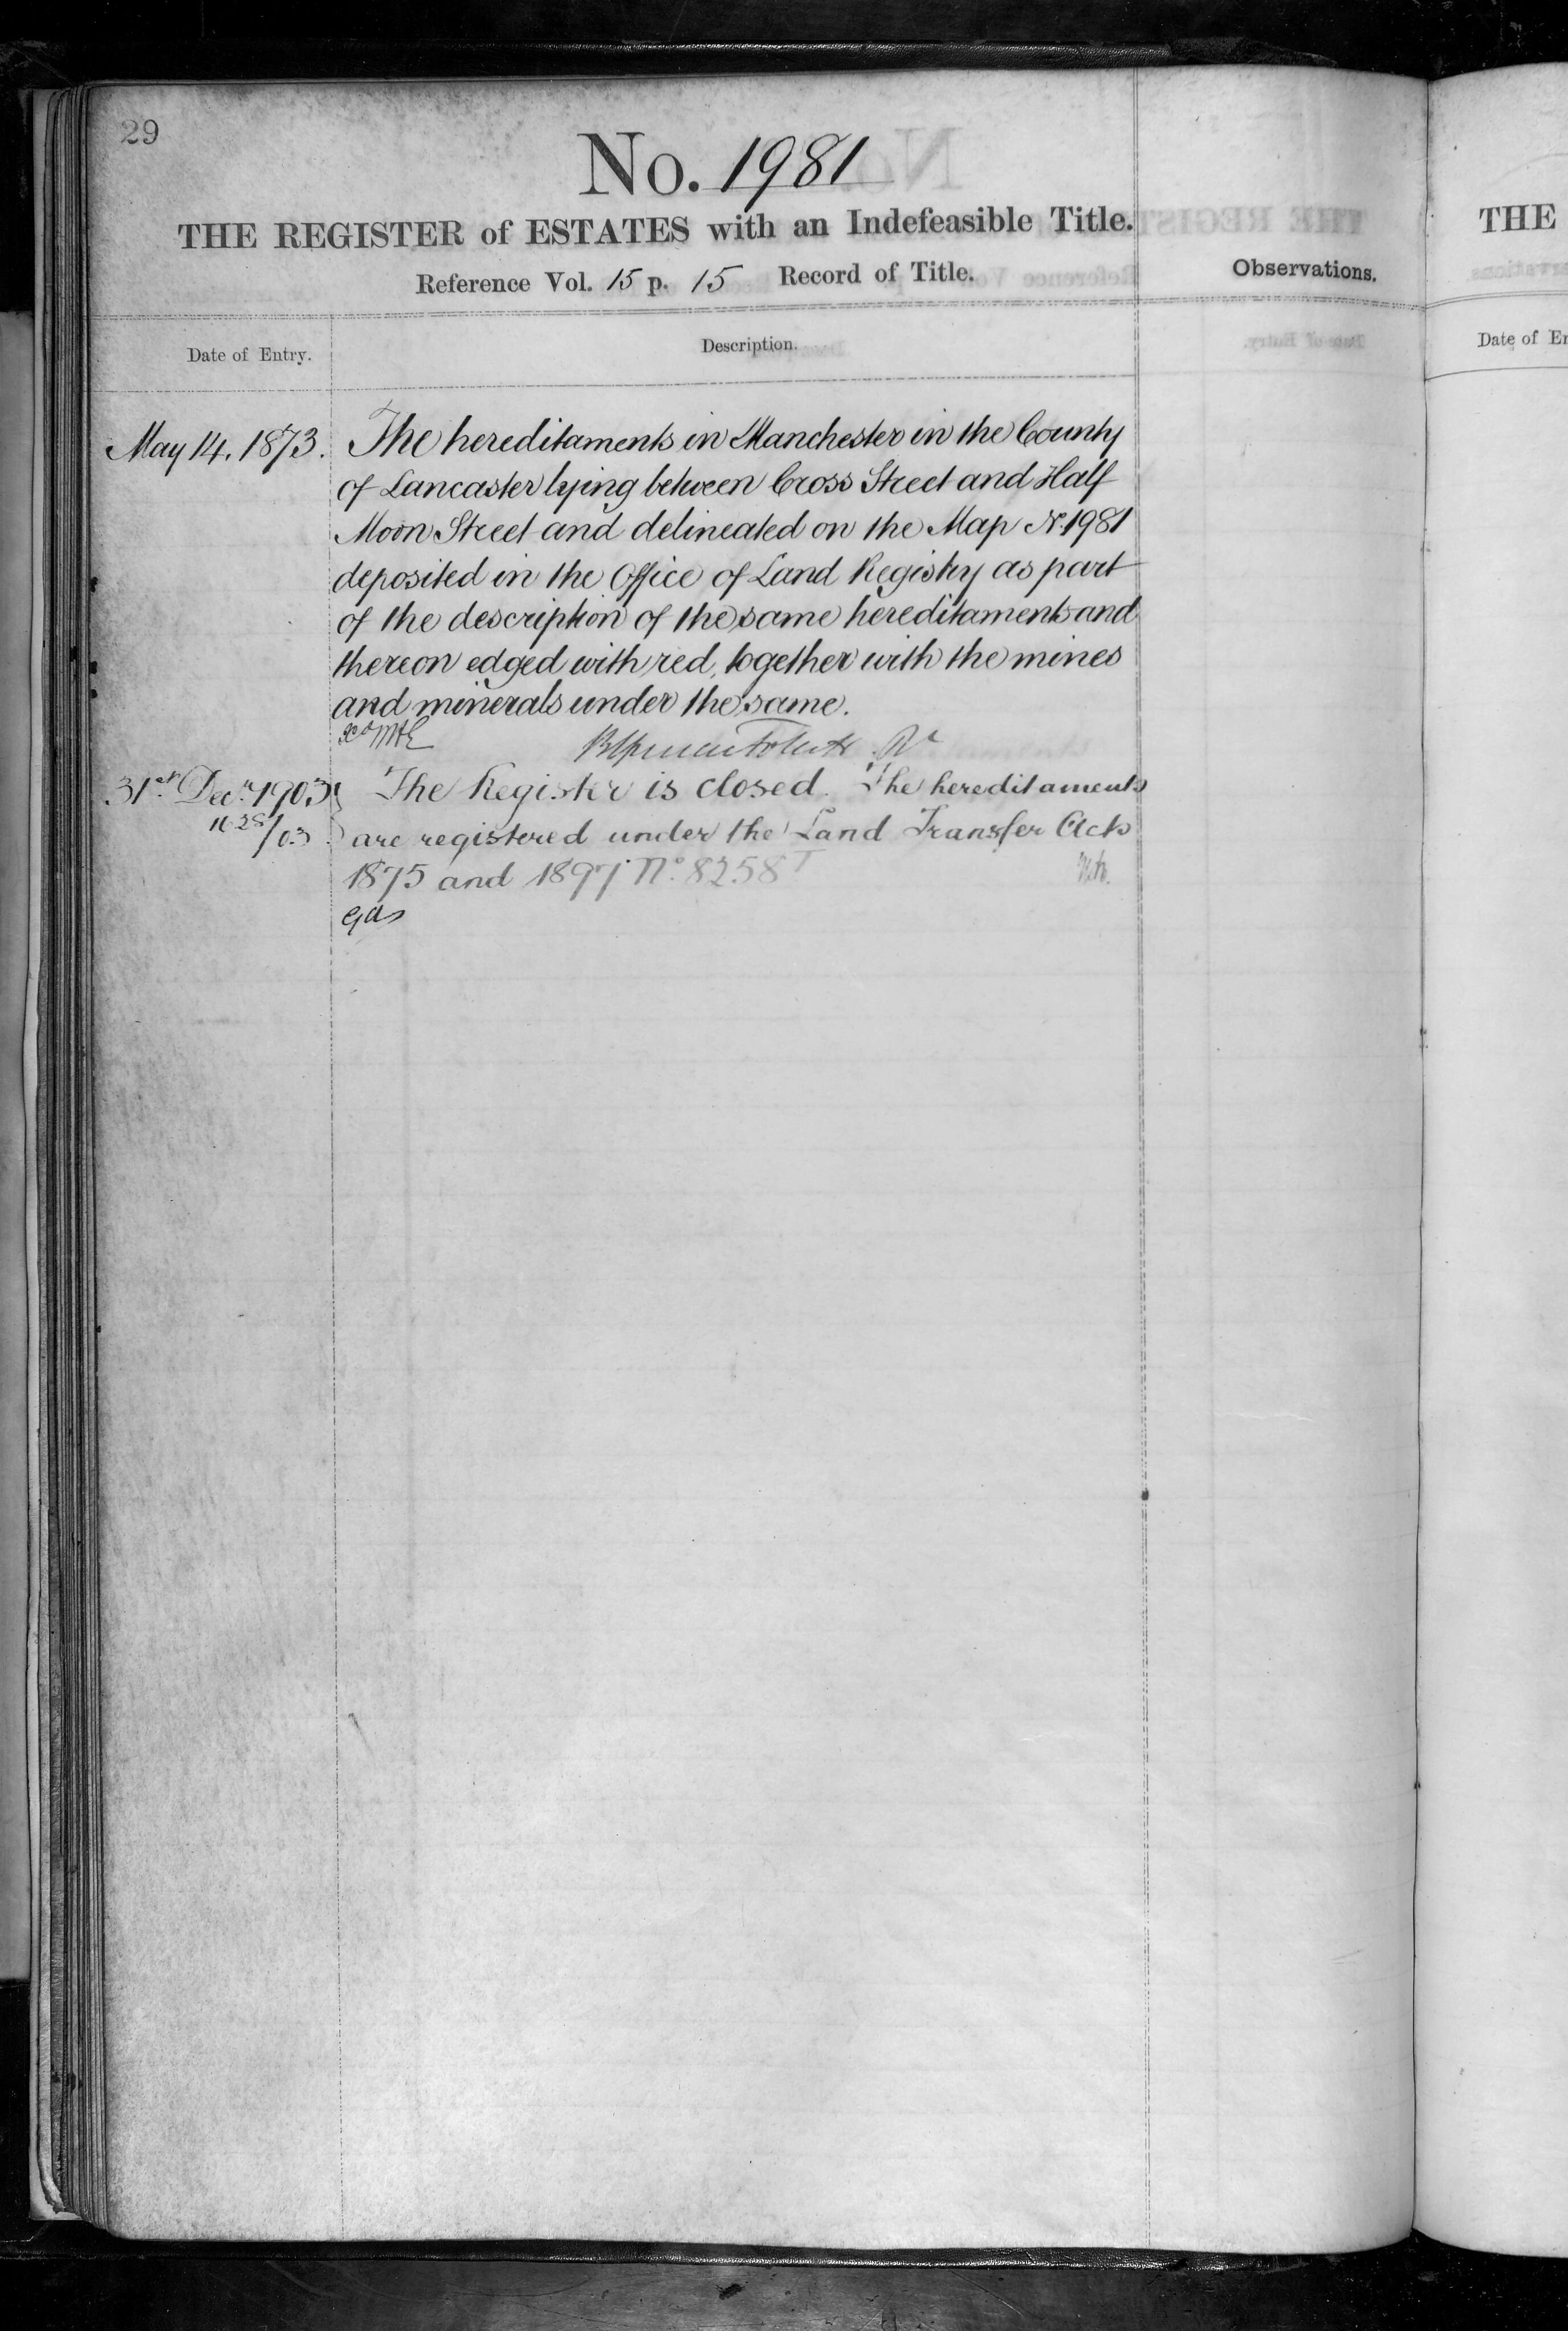 29
No. 1981
THE REGISTER of ESTATES with an Indefeasible Title.
Reference Vol. 15 p. 15 Record of Title.
Observations.
Date of Entry.
Description.
May 14. 1873.
The hereditaments in Manchester in the County
of Lancaster lying between Cross Street and Half
Moon Street and delineated on the Map No. 1981
deposited in the Office of Land Registry as part
of the description of the same hereditaments and
thereon edged with red, together with the mines
and minerals under the same.
31st Decr. 1903
/03
The Register is closed. The hereditaments
are registered under the Land Transfer Acts
1875 and 1897 No. 8258
THE
Date of